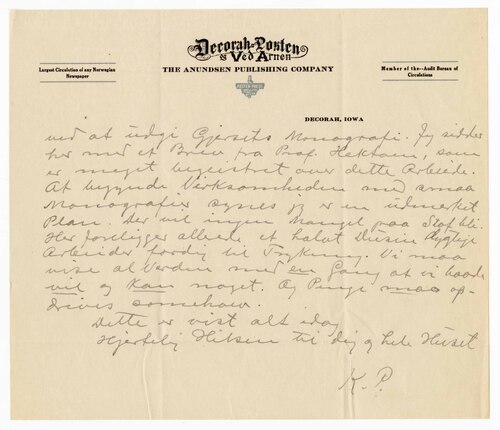 Decorah-Posten
og Ved Arnen
THE ANUNDSEN PUBLISHING COMPANY
Largest Circulation of any Norwegian
Newspaper
Member of the Audit Bureau of
Circulations
DECORAH, IOWA
ved at udgi Gjersets Monografi. Jeg sidder
her med et Brev fra Prof. Hektoen, som
er meget begeistret over dette Arbeide.
At begynde Virksomheden med smaa
Monografier synes jeg er en udmerket
Plan. Der vil ingen Mangel paa Stof bli.
Her foreligger allerede et halvt Dusin
Arbeider færdig til Trykning. Vi maa
vise al Verden med en Gang at vi baade
vil og kan noget. Og Penge maa op-
drives somehow.
Dette er vist alt idag
Hjertelig Hilsen til dig og hele Huset
K. P.